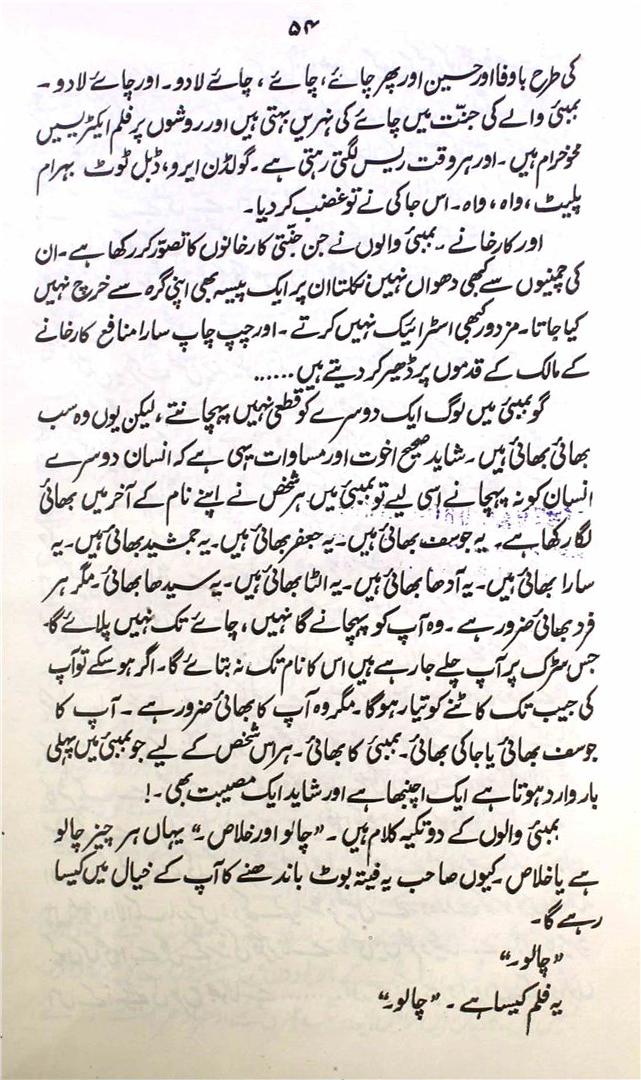 ۵۴
کی طرح باوفا اور حسین اور پھر چائے، چائے، چائے لا دو۔ اور چائے لا دو۔
بمبئی والے کی جنت میں چائے کی نہریں بہتی ہیں اور روشوں پر فلم ایکٹریسیں
محوخرام ہیں۔ اور ہر وقت ریس لگتی رہتی ہے۔ گولڈن ایرو، ڈبل ٹوٹ بہرام
پلیٹ، واہ، واہ۔ اس جاکی نے تو غضب کر دیا۔
اور کارخانے۔ بمبئی والوں نے جن جنتی کارخانوں کا تصور کر رکھا ہے۔ ان
کی چمنیوں سے کبھی دھواں نہیں نکلتا ان پر ایک پیسہ بھی اپنی گرہ سے خرچ نہیں
کیا جاتا۔ مزدور کبھی اسٹرائیک نہیں کرتے۔ اور چپ چاپ سارا منافع کارخانے
کے مالک کے قدموں پر ڈھیر کر دیتے ہیں......
گو بمبئی میں لوگ ایک دوسرے کو قطعی نہیں پہچانتے، لیکن یوں وہ سب
بھائی بھائی ہیں۔ شاید صحیح اخوت اور مساوات یہی ہے کہ انسان دوسرے
انسان کو نہ پہچانے اسی لیے تو بمبئی میں ہر شخص نے اپنے نام کے آخر میں بھائی
لگا رکھا ہے۔ یہ جوسف بھائی ہیں۔ یہ جعفر بھائی ہیں۔ یہ جمشید بھائی ہیں۔ یہ
سارا بھائی ہیں۔ یہ آدھا بھائی ہیں۔ یہ الٹا بھائی ہیں۔ یہ سیدھا بھائی۔ مگر ہر
فرد بھائی ضرور ہے۔ وہ آپ کو پہچانے گا نہیں، چائے تک نہیں پلائے گا۔
جس سڑک پر آپ چلے جا رہے ہیں اس کا نام تک نہ بتائے گا۔ اگر ہو سکے تو آپ
کی جیب تک کاٹنے کو تیار ہوگا۔ مگر وہ آپ کا بھائی ضرور ہے۔ آپ کا
جوسف بھائی یا جاکی بھائی۔ بمبئی کا بھائی۔ ہر اس شخص کے لیے جو بمبئی میں پہلی
بار وارد ہوتا ہے ایک اچنبھا ہے اور شاید ایک مصیبت بھی۔!
بمبئی والوں کے دو تکیہ کلام ہیں۔ ”چالو اور خلاص۔“ یہاں ہر چیز چالو
ہے یا خلاص۔ کیوں صاحب یہ فیتہ بوٹ باندھنے کا آپ کے خیال میں کیسا
رہے گا۔
”چالو۔“
یہ فلم کیسا ہے۔ ”چالو۔“